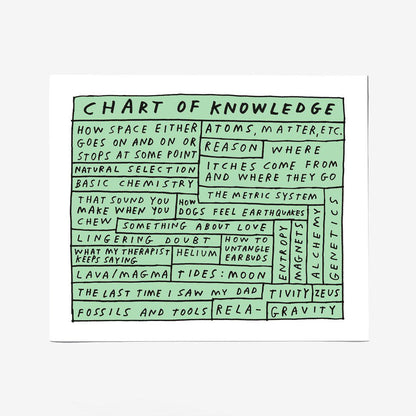 CHART OF KNOWLEDGE
HOW SPACE EITHER
GOES ON AND ON OR
STOPS AT SOME POINT
ATOMS, MATTER, ETC.
REASON
WHERE
ITCHES COME FROM
AND WHERE THEY GO
NATURAL SELECTION
BASIC CHEMISTRY
THE METRIC SYSTEM
THAT SOUND YOU
MAKE WHEN YOU
CHEW
HOW
DOGS FEEL EARTHQUAKES
SOMETHING ABOUT LOVE
LINGERING DOUBT
HOW TO
UNTANGLE
EARBUDS
ENTROPY
MAGNETS
ALCHEMY
GENETICS
WHAT MY THERAPIST
KEEPS SAYING
HELIUM
LAVA/MAGMA
TIDES: MOON
THE LAST TIME I SAW MY DAD
TIVITY
ZEUS
FOSSILS AND TOOLS
RELA-
GRAVITY